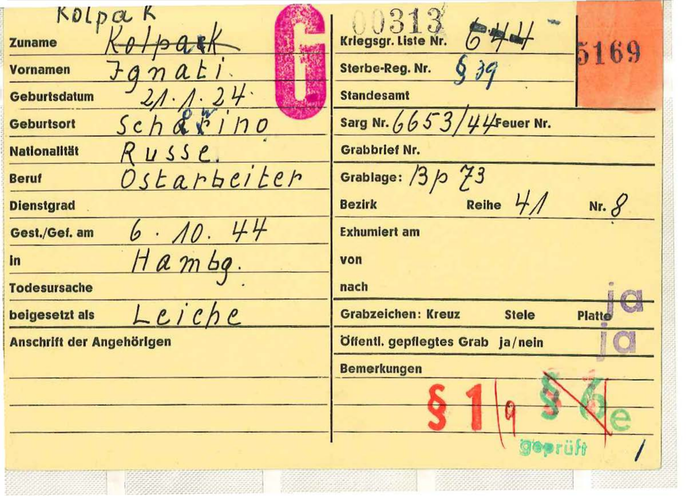 Kolpak
Zuname Kolpak
Vornamen Jgnati.
Geburtsdatum 21.1.24.
Geburtsort
Nationalität Russe.
Beruf Ostarbeiter
Dienstgrad
Gest./Gef. am 6. 10. 44
in Hambg.
Todesursache
beigesetzt als Leiche
Anschrift der Angehörigen
G
00313
Kriegsgr. Liste Nr. 644
5169
Sterbe-Reg. Nr. § 39
Standesamt
Sarg Nr. 6653/44 Feuer Nr.
Grabbrief Nr.
Grablage: Bp 73
Bezirk Reihe 41 Nr. 8
Exhumiert am
von
nach
ja
Grabzeichen: Kreuz Stele Platte
ja
Öffentl. gepflegtes Grab ja/nein
Bemerkungen
§ 1/9 § 6 e
geprüft
1